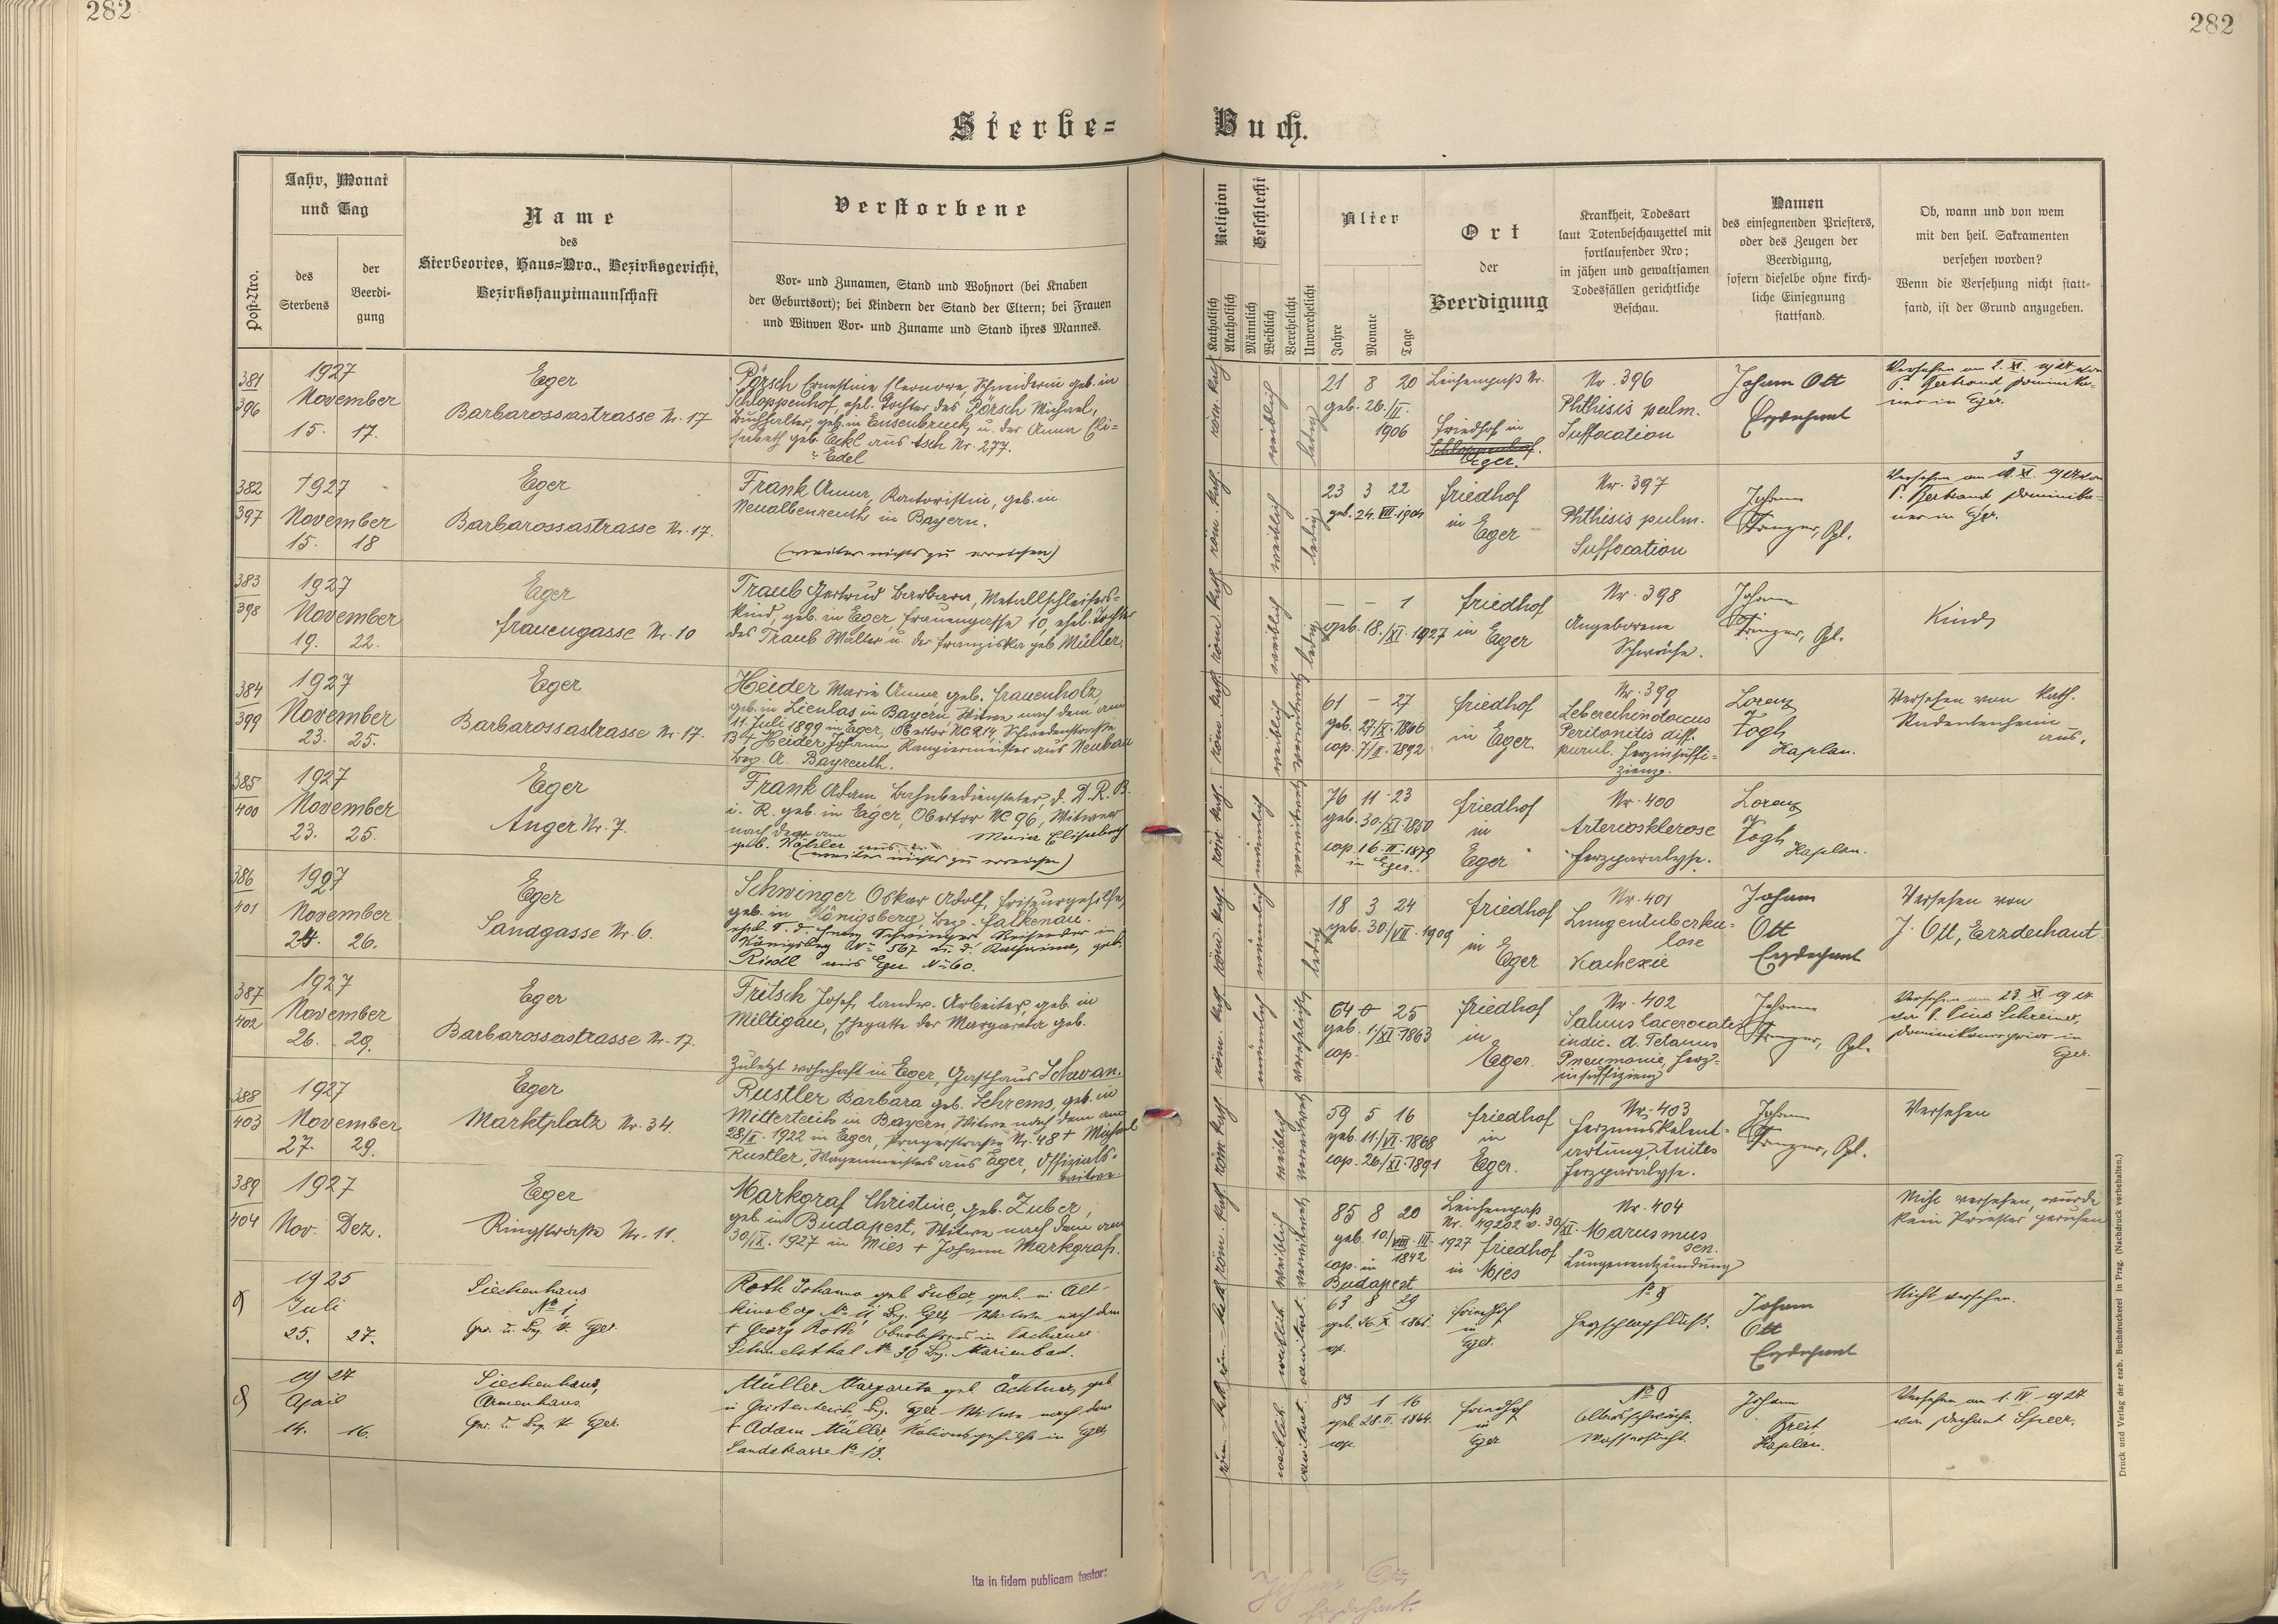 282
282
Sterbe-
Buch.
Post-Nro.
Jahr, Monat
und Tag
des
Sterbens
der
Beerdi-
gung
Name
des
Sterbeortes, Haus-Nro., Bezirksgericht,
Bezirkshauptmannschaft
Verstorbene
Vor- und Zunamen, Stand und Wohnort (bei Knaben
der Geburtsort); bei Kindern der Stand der Eltern; bei Frauen
und Witwen Vor- und Zuname und Stand ihres Mannes.
Religion
Katholisch
Akatholisch
Geschlecht
Männlich
Weiblich
Verehelicht
Unverehelicht
Alter
Jahre
Monate
Tage
Ort
der
Beerdigung
Krankheit, Todesart
laut Totenbeschauzettel mit
fortlaufender Nro;
in jähen und gewaltsamen
Todesfällen gerichtliche
Beschau.
Namen
des einsegnenden Priesters,
oder des Zeugen der
Beerdigung,
sofern dieselbe ohne kirch-
liche Einsegnung
stattfand.
Ob, wann und von wem
mit den heil. Sakramenten
versehen worden?
Wenn die Versehung nicht statt-
fand, ist der Grund anzugeben.
381
396
1927
November
15. 17.
Eger
Barbarossastrasse Nr. 17
Pörsch Ernestine Eleonore, Schneiderin geb. in
Schloppenhof, ehel. Tochter des Pörsch Michael,
Buchhalter, geb. in Ensenbruck u. der Anna Eli-
sabeth geb. Eckl aus Asch Nr. 277.
Edel
röm. kath.
weiblich
ledig
21 8 20
geb. 26./II.
1906
Leichenpaß Nr.
Friedhof in
Schloppenhof.
Eger.
Nr. 396
Phthisis pulm.
Suffocation
Johann Ott
Erzdechant
Versehen am 2. XI. 1927 von
P. Bertrand Dominika-
ner in Eger.
382
397
1927
November
15. 18
Eger
Barbarossastrasse Nr. 17.
Frank Anna, Kontoristin, geb. in
Neualbenreuth in Bayern.
(weiter nichts zu erreichen)
röm. kath.
weiblich
ledig
23 3 22
geb. 24. VII. 1904
Friedhof
in
Eger
Nr. 397
Phthisis pulm.
Suffocation
Johann
3
Versehen am XI. 1927 von
P. Bertrand Dominika-
ner in Eger.
383
398
1927
November
19. 22.
Eger
Frauengasse Nr. 10
Traub Gertrud Barbara, Metallschleifers-
kind, geb. in Eger, Frauengasse 10, ehel. Tochter
des Traub Walter u. der Franziska geb. Müller.
röm. kath.
weiblich
ledig
– – 1
geb. 18./XI. 1927
Friedhof
in Eger
Nr. 398
Angeborene
Schwäche.
Johann
Kind
384
399
1927
November
23. 25.
Eger
Barbarossastrasse Nr. 17.
Heider Maria Anna, geb. Frauenholz,
geb. in Lienlas in Bayern, Witwe nach dem am
11. Juli 1899 in Eger, Obertor NC 914, Schiedenstraße
13 + Heider Johann, Rangiermeister aus Neubau
Bez. A. Bayreuth.
röm. kath.
weiblich
verwitwet
61 – 27
geb. 27/X. 1866
cop. 7/II. 1892
Friedhof
in Eger.
Nr. 399
Peritonitis diff.
purul. Herzinsuffi-
zienz.
Lorenz
Vogl
Kaplan.
Versehen von Kath.
Studentenheim
aus.
385
400
1927
November
23. 25.
Eger
Anger Nr. 7.
Frank Adam Bahnbediensteter, d. D. R. B.
i. R. geb. in Eger, Obertor NC 96, Witwer
nach der am Maria Elisabeth
geb. Köhler aus
(weiter nichts zu erreichen)
röm. kath.
männlich
verwitwet
76 11 23
geb. 30./XI. 1850
cop. 16. II. 1879
in Eger.
Friedhof
in
Eger
Nr. 400
Arteriosklerose
Herzparalyse.
Lorenz
Vogl
Kaplan.
386
401
1927
November
24. 26.
Eger
Sandgasse Nr. 6.
Schwinger Oskar Adolf, Friseurgehilfe,
geb. in Königsberg, Bez. Falkenau.
ehel. S. d. Franz Schwinger Reisender in
Königsberg Nr. 567 u. d. Katharina, geb.
Riedl aus Eger No 60.
röm. kath.
männlich
ledig
18 3 24
geb. 30/VII. 1909
Friedhof
in
Eger
Nr. 401
Lungentuberku-
lose
Kachexie
Johann
Ott
Erzdechant
Versehen von
J. Ott, Erzdechant
387
402
1927
November
26. 29.
Eger
Barbarossastrasse Nr. 17.
Fritsch Josef, landw. Arbeiter, geb. in
Miltigau, Ehegatte der Margareta geb.
Zuletzt wohnhaft in Eger, Gasthaus Schwan.
röm. kath.
männlich
verehelicht
64 0 25
geb. 1./XI. 1863
cop.
Friedhof
in
Eger.
Nr. 402
indic. d. Tetanus
Pneumonie, Herz-
insuffizienz
Johann
Versehen am 23. XI. 1927
von P. Pius Schreiner,
Dominikanerprior in
Eger.
388
403
1927
November
27. 29.
Eger
Marktplatz Nr. 34.
Rustler Barbara geb. Schrems, geb. in
Mitterteich in Bayern, Witwe nach dem am
28/X. 1922 in Eger, Pragerstraße Nr. 48 + Michael
Rustler, Wagenmeisters aus Eger, Offizials-
witwe
röm. kath.
weiblich
verwitwet
59 5 16
geb. 11./VI. 1868
cop. 26./XI. 1891
Friedhof
in
Eger.
Nr. 403
Herzmuskelent-
artung,
Herzparalyse.
Johann
Versehen
389
404
1927
Nov. Dez.
Eger
Ringstraße Nr. 11.
Markgraf Christine, geb. Zuber,
geb. in Budapest, Witwe nach dem am
30/IX. 1927 in Mies + Johann Markgraf.
röm. kath.
weiblich
verwitwet
85 8 20
geb. 10/ III.
1842
cop. in
Budapest
Leichenpass
Nr. 49202 v. 30/XI.
1927 Friedhof
in Mies
Nr. 404
Marasmus
sen.
Lungenentzündung
Nicht versehen, wurde
kein Priester gerufen
1925
Juli
25. 27.
Siechenhaus
No 1,
Ger. u. Bez. H. Eger.
Roth Johanna geb. Zuber, geb. in Alt-
kinsberg No 4, Bez. Eger, Witwe nach dem
+ Georg Roth, Oberlehrer in
Schmelzthal No 30, Bez. Marienbad.
röm. kath.
weiblich
verwitwet.
63 8 29
geb. 26. X. 1861.
cop.
Friedhof
in
Eger.
No 8
Herzschlagfluß.
Johann
Ott
Erzdechant
Nicht versehen.
1927
April
14. 16.
Siechenhaus,
Armenhaus.
Ger. u. Bez. H. Eger.
Müller Margareta geb. Ächtner, geb.
in Bez. Eger, Witwe nach dem
+ Adam Müller, in Eger,
Sandstrasse No 18.
röm. kath.
weiblich
verwitwet.
83 1 16
geb. 28. II. 1844.
cop.
Friedhof
in
Eger
Altersschwäche.
Wassersucht.
Johann
Kaplan.
Versehen am 1. IV. 1927
von Dechant Speer.
Ita in fidem publicam testor:
Johann Ott,
Erzdechant.
Druck und Verlag der erzb. Buchdruckerei in Prag. (Nachdruck vorbehalten.)